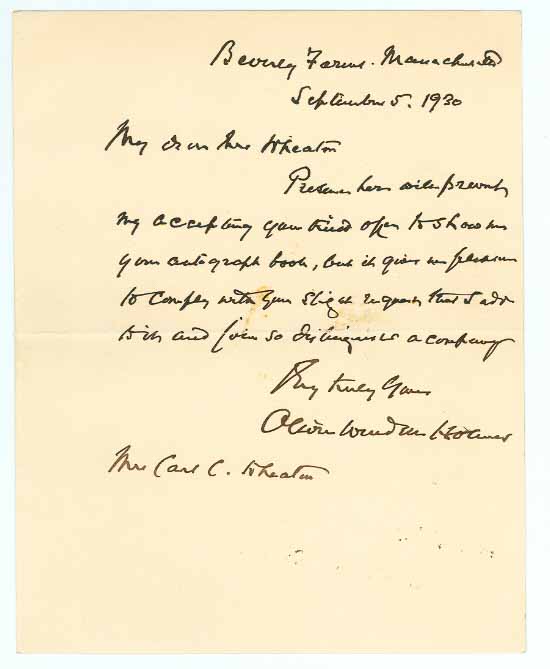 Beverly Farms. Massachusetts
September 5. 1930
My dear Mrs Wheaton
Pressure here will prevent
my accepting your kind offer to show me
your autograph book, but it gives me pleasure
to comply with your slight request that I add
to it and join so distinguished a company
Very truly yours
Oliver Wendell Holmes
Mrs Carl C. Wheaton